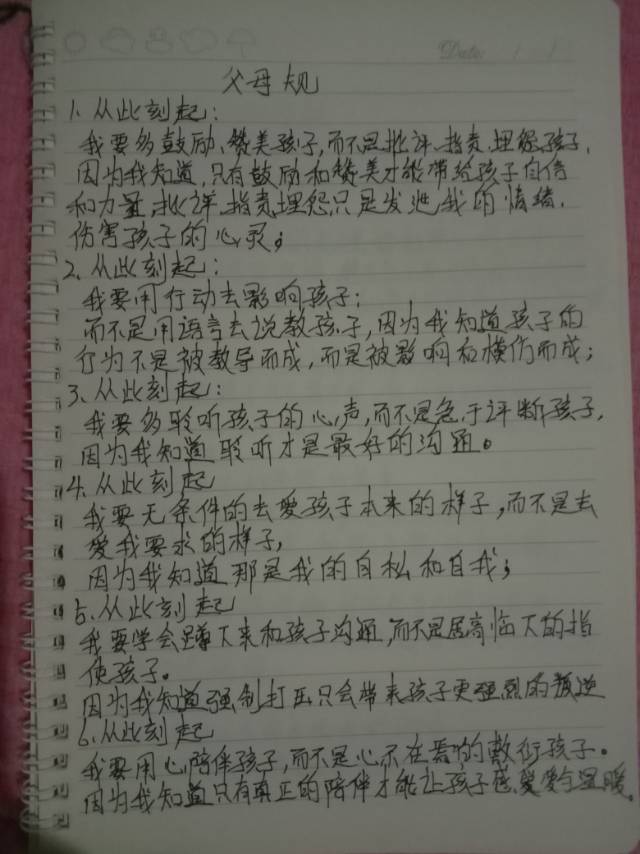 Date
父母规
1. 从此刻起:
我要多鼓励、赞美孩子,而不是批评、指责、埋怨孩子,
因为我知道,只有鼓励和赞美才能带给孩子自信
和力量,批评、指责、埋怨只是发泄我的情绪,
伤害孩子的心灵;
2、从此刻起:
我要用行动去影响孩子;
而不是用语言去说教孩子,因为我知道孩子的
行为不是被教导而成,而是被影响和模仿而成;
3、从此刻起:
我要多聆听孩子的心声,而不是急于评断孩子,
因为我知道聆听才是最好的沟通。
4、从此刻起
我要无条件的去爱孩子本来的样子,而不是去
爱我要求的样子,
因为我知道那是我的自私和自我;
5、从此刻起
我要学会蹲下来和孩子沟通,而不是居高临下的指
使孩子。
因为我知道强制打压只会带来孩子更强烈的叛逆
6、从此刻起
我要用心陪伴孩子,而不是心不在焉的敷衍孩子。
因为我知道只有真正的陪伴才能让孩子感受爱与温暖。